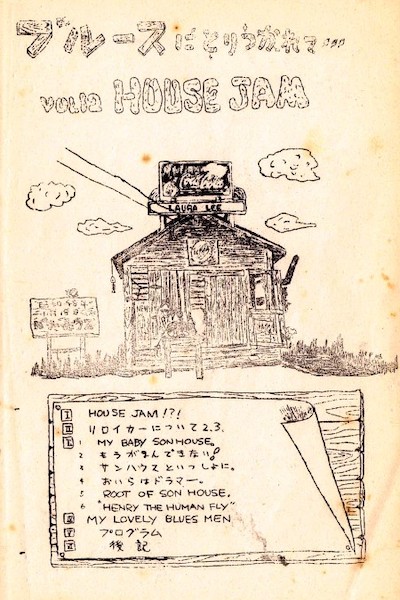 ブルースにとりつかれて...
VOL.12 HOUSE JAM
LAURA LEE
I HOUSE JAM!?!
II リロイカーについて2.3.
III 1 MY BABY SON HOUSE。
2 もうがまんできない!
3 サンハウスといっしょに。
4 おいらはドラマー。
5 ROOT OF SON HOUSE.
6 "HENRY THE HUMAN FLY"
MY LOVELY BLUES MEN
プログラム
後記